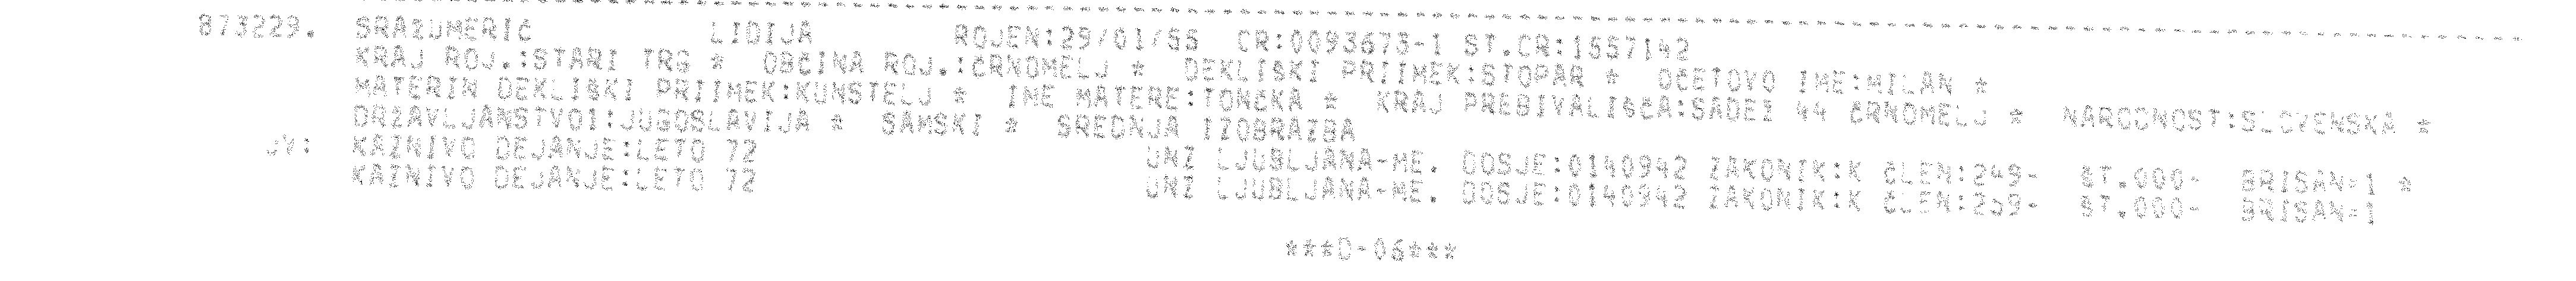 873229. SRAIUMERIČ LIDIJA ROJEN:29/01/55 CR:0093673-1 ST.CR:1557142
KRAJ ROJ.:STARI TRG * OBČINA ROJ.:ČRNOMELJ * DEKLIŠKI PRIIMEK:STOPAR * OČETOVO IME:MILAN *
MATERIN DEKLIŠKI PRIIMEK:KUNSTELJ * IME MATERE:TONČKA * KRAJ PREBIVALIŠČA:SADEŽ 44 ČRNOMELJ * NARODNOST:SLOVENSKA *
DRŽAVLJANSTVO1:JUGOSLAVIJA * SAMSKI * SREDNJA IZOBRAZBA
JV: KAZNIVO DEJANJE:LETO 72 UNZ LJUBLJANA-ME. DOSJE:0140942 ZAKONIK:K ČLEN:249- ST.000- BRISAN=1 *
KAZNIVO DEJANJE:LETO 72 UNZ LJUBLJANA-ME. DOSJE:0140942 ZAKONIK:K ČLEN:259- ST.000- BRISAN=1
***D-06***